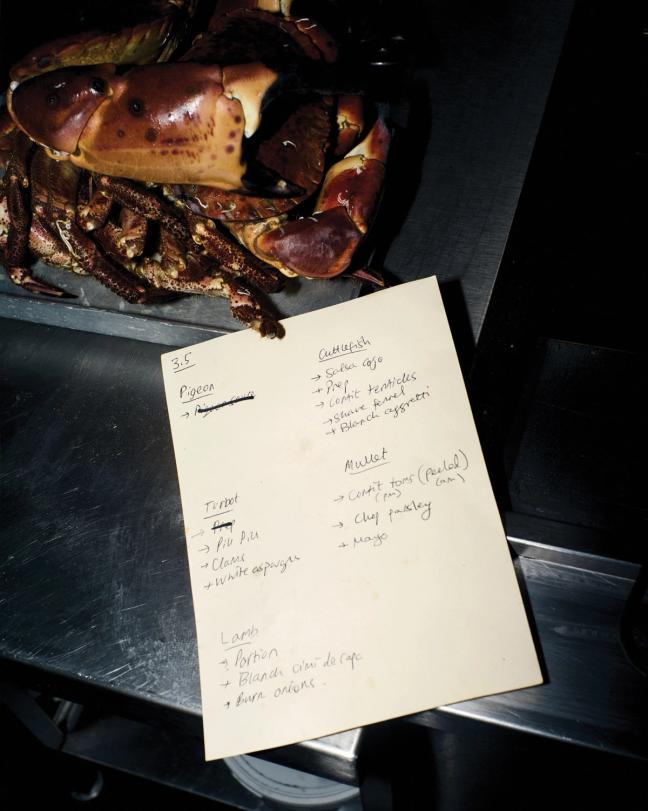 3.5
Pigeon
→
Turbot
→ Prep
→ Pil Pil
→ Clams
→ White asparagus
Lamb
→ Portion
→ Blanch cimi de rapa
→ Burn onions.
Cuttlefish
→ Salsa
→ Prep
→ Confit tenticles
→ Shave fennel
→ Blanch aggretti
Mullet
→ Confit toms (peeled)
(pm) (am)
→ Chop parsley
→ Mayo